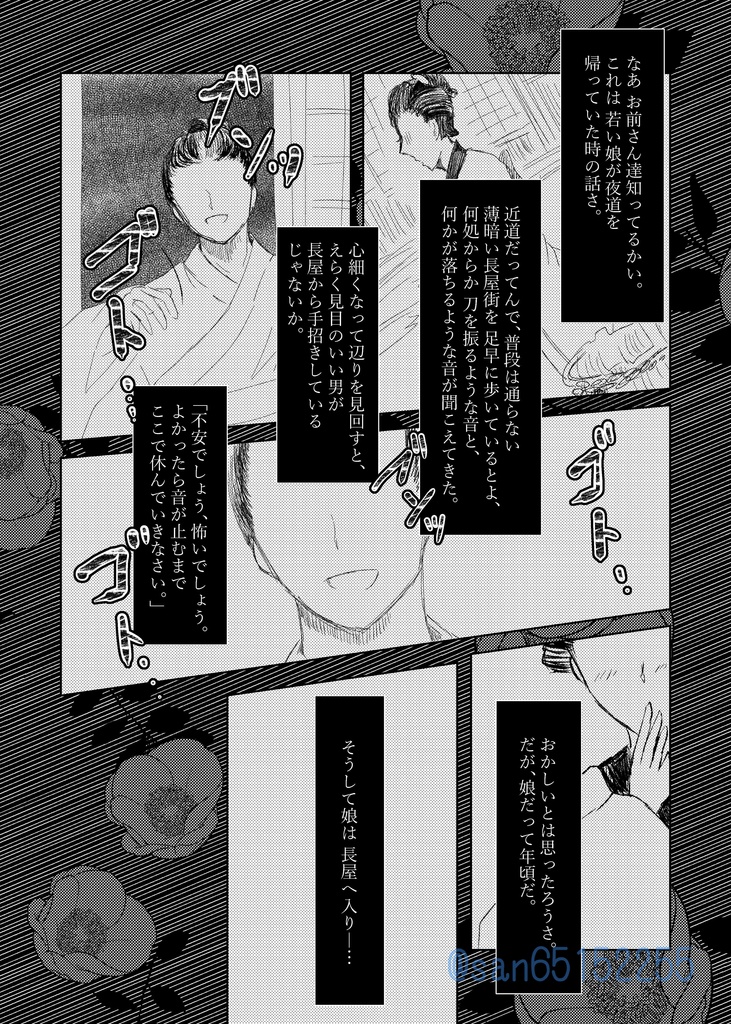 なあ お前さん達知ってるかい。
これは 若い娘が夜道を
帰っていた時の話さ。
近道だってんで、普段は通らない
薄暗い長屋街を 足早に歩いているとよ、
何処からか 刀を振るような音と、
何かが落ちるような音が聞こえてきた。
心細くなって辺りを見回すと、
えらく見目のいい男が
長屋から手招きしている
じゃないか。
ザンッ
ゴトッ…
「不安でしょう、怖いでしょう。
よかったら音が止むまで
ここで休んでいきなさい。」
ゴト…
ザンッ
ゴト…
おかしいとは思ったろうさ。
だが、娘だって年頃だ。
そうして娘は 長屋へ入り―…
@san65152255